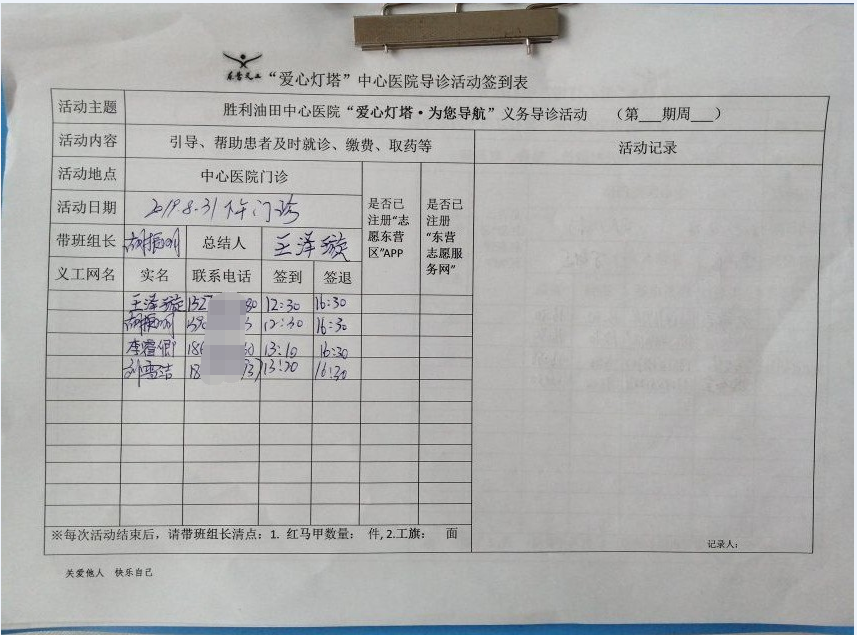 东营义工
“爱心灯塔”中心医院导诊活动签到表
活动主题 胜利油田中心医院“爱心灯塔·为您导航”义务导诊活动 （第___期周___）
活动内容 引导、帮助患者及时就诊、缴费、取药等 活动记录
活动地点 中心医院门诊
活动日期 2019.8.31下午门诊
是否已注册“志愿东营区”APP
是否已注册“东营志愿服务网”
带班组长 胡振明 总结人 王泽璇
义工网名 实名 联系电话 签到 签退
王泽璇 152 80 12:30 16:30
胡振明 12:30 16:30
李睿卿 186 13:10 16:30
刘雪洁 18 13:20 16:30
※每次活动结束后，请带班组长清点：1. 红马甲数量： 件,2.工旗： 面
记录人：
关爱他人 快乐自己